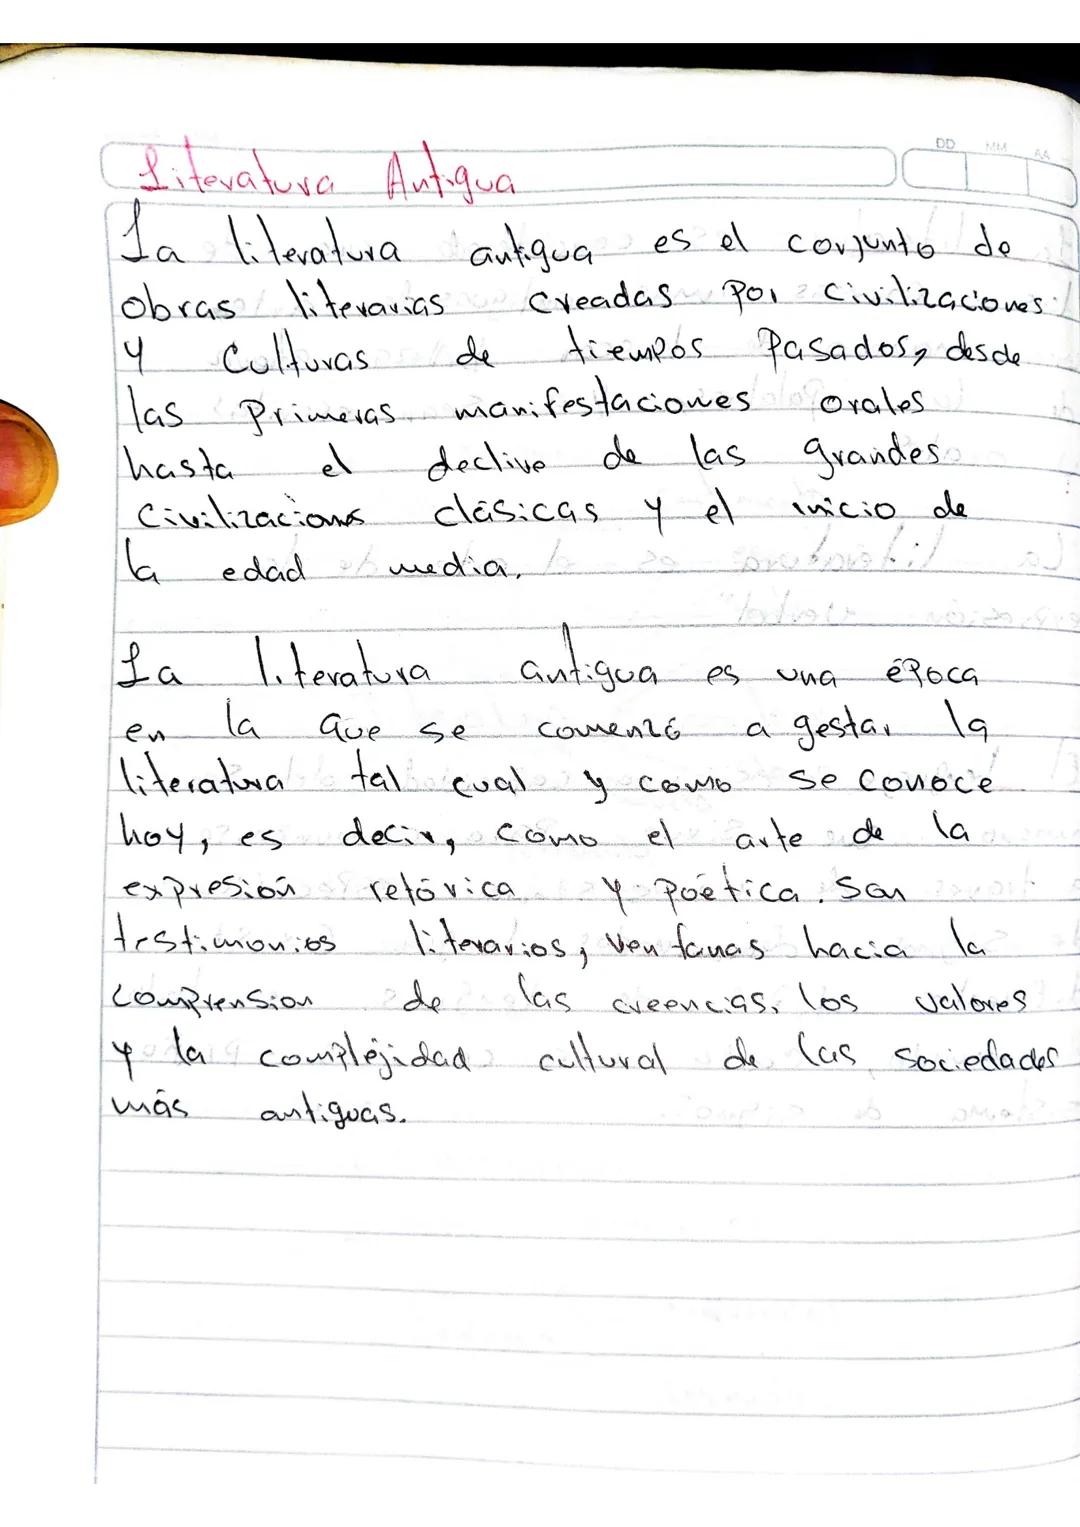 Literatura Antigua
DD MM AA
La literatura antigua es el conjunto de
obras literarias creadas por civilizaciones
y Culturas de tiempos pasados, desde
las primeras manifestaciones orales
hasta el declive de las grandes
Civilizaciones clásicas y el inicio de
la edad media.
La literatura antigua es una época
en la que se comenzó a gestar la
literatura tal cual y como se conoce
hoy, es decir, como el arte de la
expresión retórica y poética. Son
testimonios literarios, ventanas hacia la
comprension de las creencias, los valores
y la complejidad cultural de las sociedades
más antiguas.